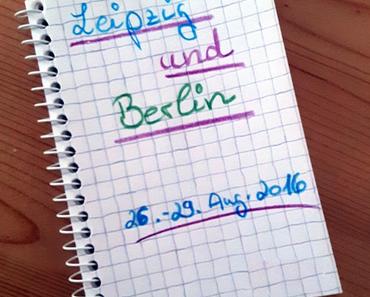 Leipzig
und
Berlin
26.-29. Aug. 2016